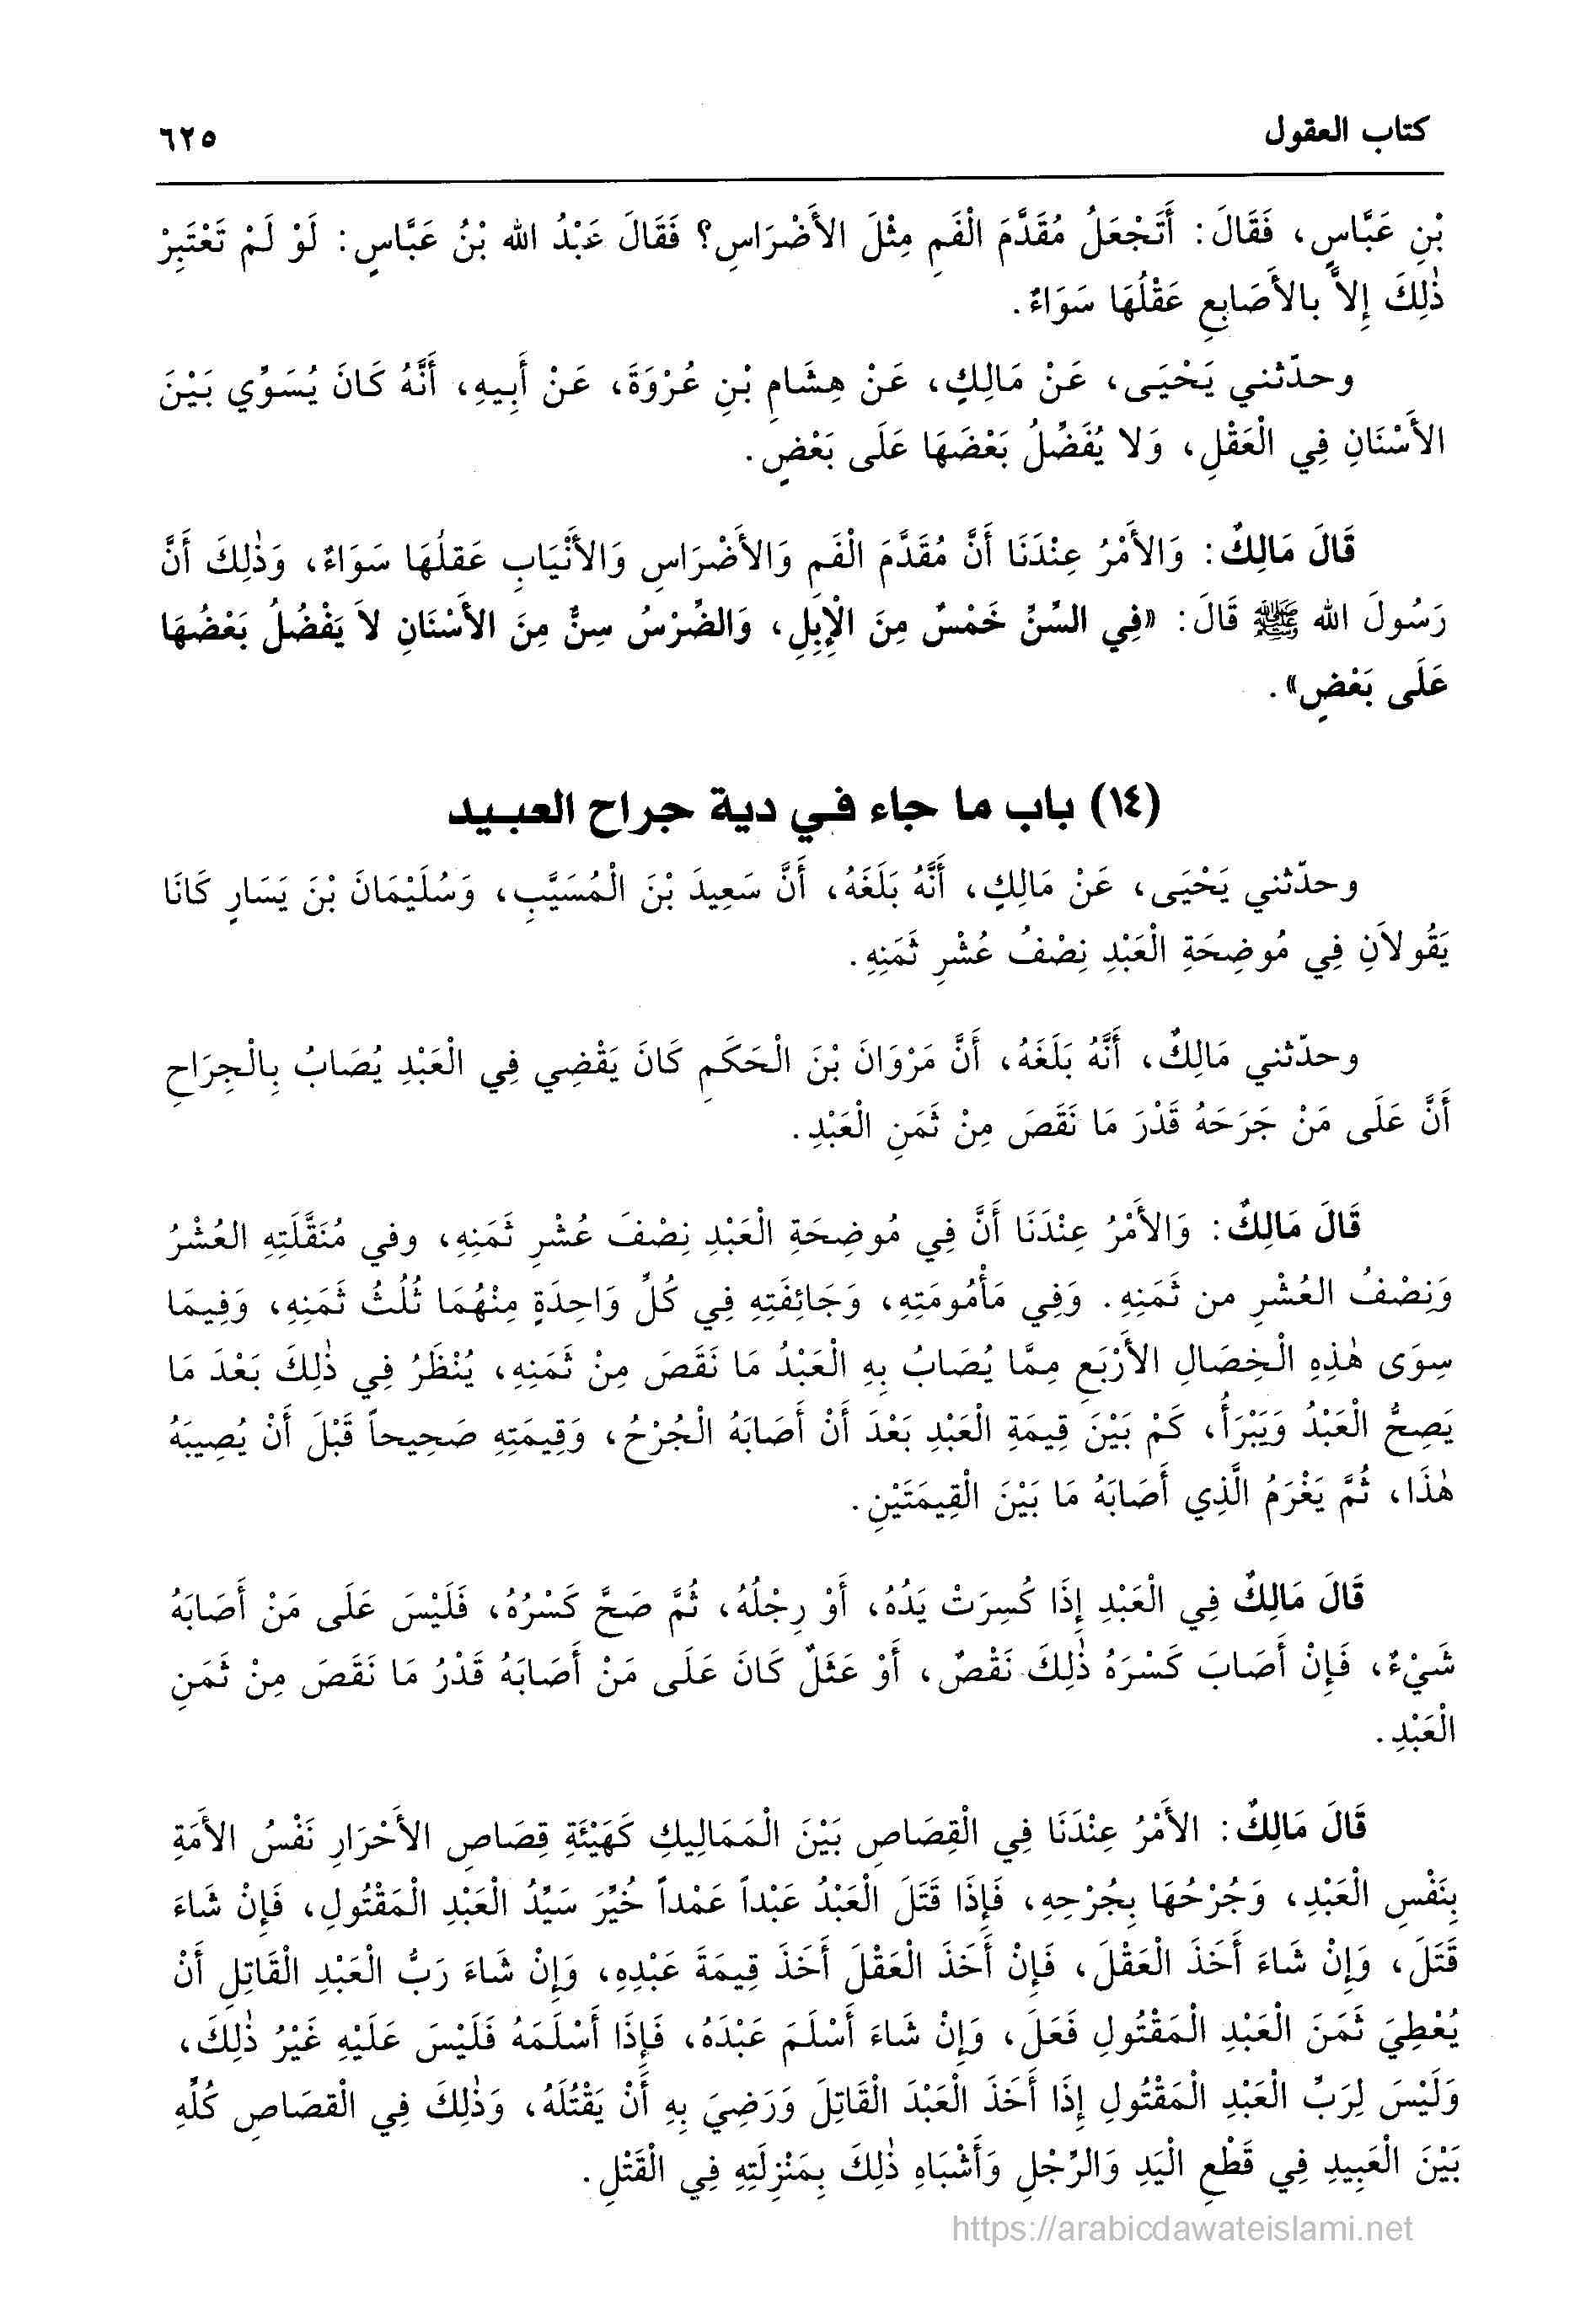 كتاب العقول ٦٢٥
بْنِ عَبَّاسٍ، فَقَالَ: أَتَجْعَلُ مُقَدَّمَ الْفَمِ مِثْلَ الأَضْرَاسِ؟ فَقَالَ عَبْدُ الله بْنُ عَبَّاسٍ: لَوْ لَمْ تَعْتَبِرْ
ذٰلِكَ إِلاَّ بالأَصَابِعِ عَقْلُهَا سَوَاءٌ.
وحدّثني يَحْيَى، عَنْ مَالِكٍ، عَنْ هِشَامِ بْنِ عُرْوَةَ، عَنْ أَبِيهِ، أَنَّهُ كَانَ يُسَوِّي بَيْنَ
الأَسْنَانِ فِي الْعَقْلِ، وَلا يُفَضِّلُ بَعْضَهَا عَلَى بَعْضٍ.
قَالَ مَالِكٌ: وَالأَمْرُ عِنْدَنَا أَنَّ مُقَدَّمَ الْفَمِ وَالأَضْرَاسِ وَالأَنْيَابِ عَقلُهَا سَوَاءٌ، وَذٰلِكَ أَنَّ
رَسُولَ الله ﷺ قَالَ: «فِي السِّنِّ خَمْسٌ مِنَ الْإِبِلِ، وَالضِّرْسُ سِنٌّ مِنَ الأَسْنَانِ لاَ يَفْضُلُ بَعْضُهَا
عَلَى بَعْضٍ».
(١٤) باب ما جاء في دية جراح العبيد
وحدّثني يَحْيَى، عَنْ مَالِكٍ، أَنَّهُ بَلَغَهُ، أَنَّ سَعِيدَ بْنَ الْمُسَيَّبِ، وَسُلَيْمَانَ بْنَ يَسَارٍ كَانَا
يَقُولاَنِ فِي مُوضِحَةِ الْعَبْدِ نِصْفُ عُشْرِ ثَمَنِهِ.
وحدّثني مَالِكٌ، أَنَّهُ بَلَغَهُ، أَنَّ مَرْوَانَ بْنَ الْحَكَمِ كَانَ يَقْضِي فِي الْعَبْدِ يُصَابُ بِالْجِرَاحِ
أَنَّ عَلَى مَنْ جَرَحَهُ قَدْرَ مَا نَقَصَ مِنْ ثَمَنِ الْعَبْدِ.
قَالَ مَالِكٌ: وَالأَمْرُ عِنْدَنَا أَنَّ فِي مُوضِحَةِ الْعَبْدِ نِصْفَ عُشْرِ ثَمَنِهِ، وفي مُنَقَّلَتِهِ العُشْرُ
وَنِصْفُ العُشْرِ من ثَمَنِهِ. وَفِي مَأْمُومَتِهِ، وَجَائِفَتِهِ فِي كُلِّ وَاحِدَةٍ مِنْهُمَا ثُلُثُ ثَمَنِهِ، وَفِيمَا
سِوَى هٰذِهِ الْخِصَالِ الأَرْبَعِ مِمَّا يُصَابُ بِهِ الْعَبْدُ مَا نَقَصَ مِنْ ثَمَنِهِ، يُنْظَرُ فِي ذٰلِكَ بَعْدَ مَا
يَصِحُّ الْعَبْدُ وَيَبْرَأُ، كَمْ بَيْنَ قِيمَةِ الْعَبْدِ بَعْدَ أَنْ أَصَابَهُ الْجُرْحُ، وَقِيمَتِهِ صَحِيحاً قَبْلَ أَنْ يُصِيبَهُ
هٰذَا، ثُمَّ يَغْرَمُ الَّذِي أَصَابَهُ مَا بَيْنَ الْقِيمَتَيْنِ.
قَالَ مَالِكٌ فِي الْعَبْدِ إِذَا كُسِرَتْ يَدُهُ، أَوْ رِجْلُهُ، ثُمَّ صَحَّ كَسْرُهُ، فَلَيْسَ عَلَى مَنْ أَصَابَهُ
شَيْءٌ، فَإِنْ أَصَابَ كَسْرَهُ ذٰلِكَ نَقْصٌ، أَوْ عَثَلٌ كَانَ عَلَى مَنْ أَصَابَهُ قَدْرُ مَا نَقَصَ مِنْ ثَمَنِ
الْعَبْدِ.
قَالَ مَالِكٌ: الأَمْرُ عِنْدَنَا فِي الْقِصَاصِ بَيْنَ الْمَمَالِيكِ كَهَيْئَةِ قِصَاصِ الأَحْرَارِ نَفْسُ الأَمَةِ
بِنَفْسِ الْعَبْدِ، وَجُرْحُهَا بِجُرْحِهِ، فَإِذَا قَتَلَ الْعَبْدُ عَبْداً عَمْداً خُيِّرَ سَيِّدُ الْعَبْدِ الْمَقْتُولِ، فَإِنْ شَاءَ
قَتَلَ، وَإِنْ شَاءَ أَخَذَ الْعَقْلَ، فَإِنْ أَخَذَ الْعَقْلَ أَخَذَ قِيمَةَ عَبْدِهِ، وَإِنْ شَاءَ رَبُّ الْعَبْدِ الْقَاتِلِ أَنْ
يُعْطِيَ ثَمَنَ الْعَبْدِ الْمَقْتُولِ فَعَلَ، وَإِنْ شَاءَ أَسْلَمَ عَبْدَهُ، فَإِذَا أَسْلَمَهُ فَلَيْسَ عَلَيْهِ غَيْرُ ذٰلِكَ،
وَلَيْسَ لِرَبِّ الْعَبْدِ الْمَقْتُولِ إِذَا أَخَذَ الْعَبْدَ الْقَاتِلَ وَرَضِيَ بِهِ أَنْ يَقْتُلَهُ، وَذٰلِكَ فِي الْقصَاصِ كُلِّهِ
بَيْنَ الْعَبِيدِ فِي قَطْعِ الْيَدِ وَالرِّجْلِ وَأَشْبَاهِ ذٰلِكَ بِمَنْزِلَتِهِ فِي الْقَتْلِ.
https://arabicdawateislami.net